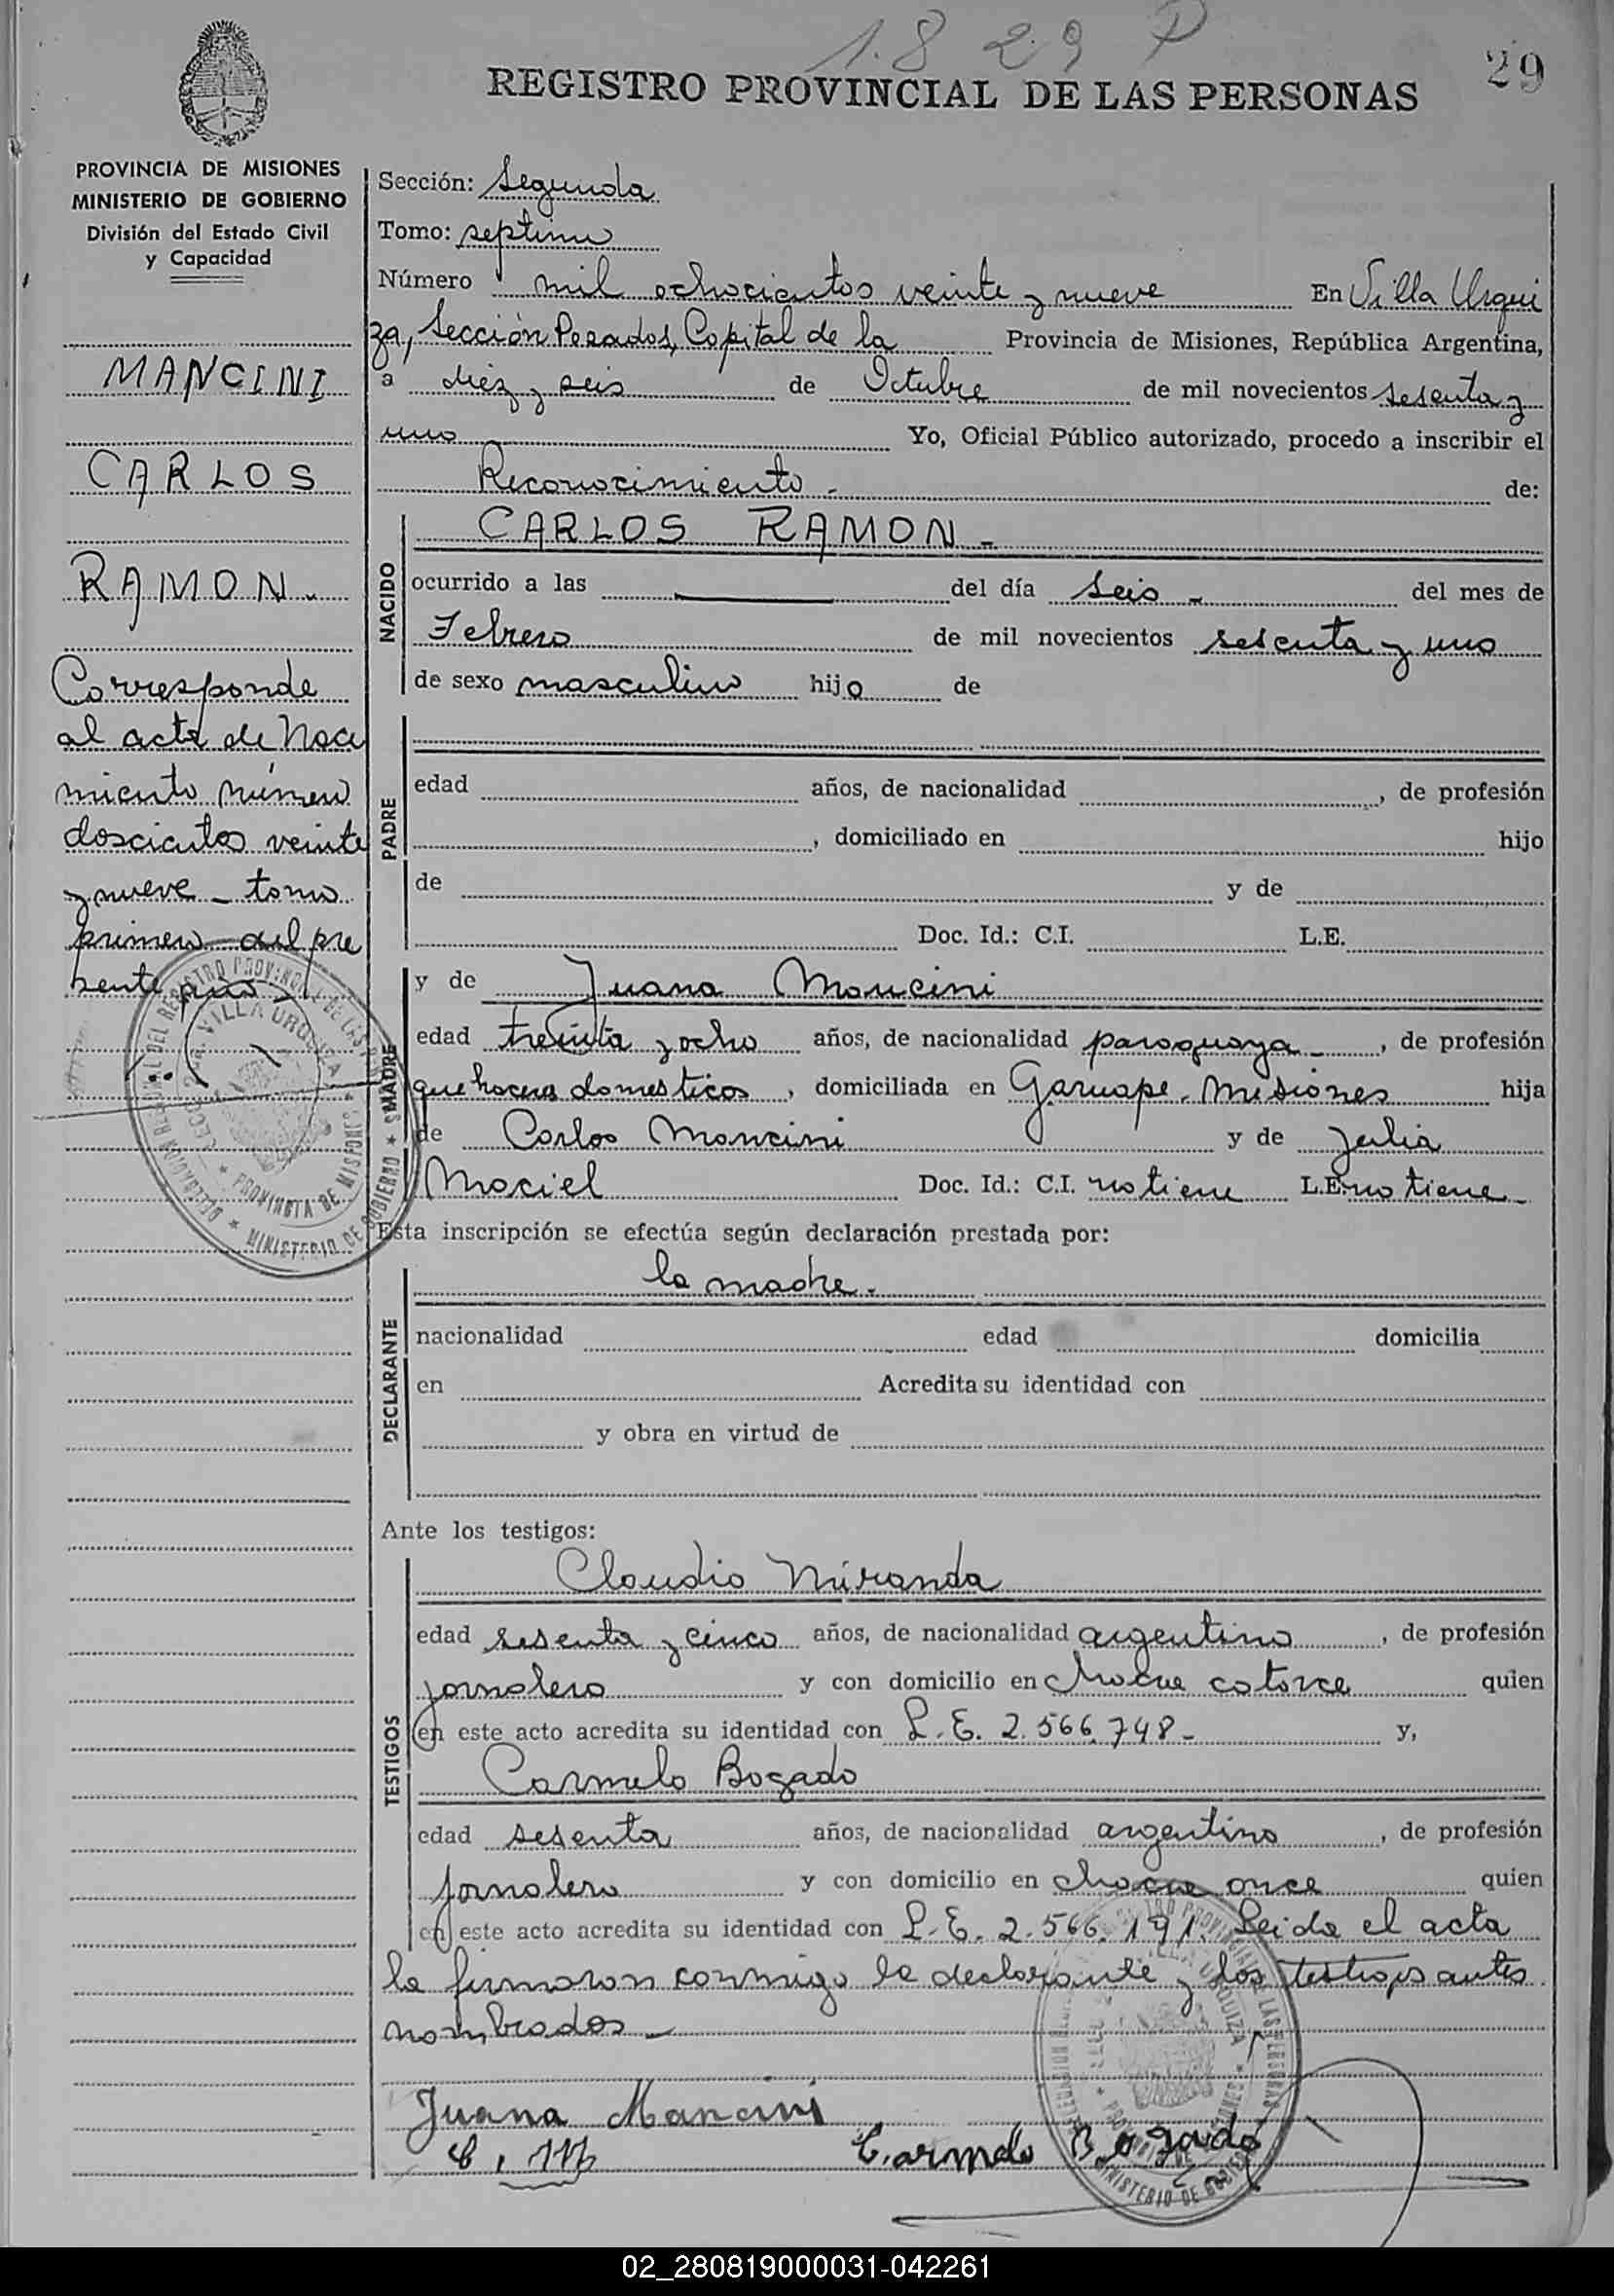 1.829 P
29
REGISTRO PROVINCIAL DE LAS PERSONAS
PROVINCIA DE MISIONES
MINISTERIO DE GOBIERNO
División del Estado Civil
y Capacidad
MANCINI
CARLOS
RAMON.
Corresponde
al acta de Naci
miento número
doscientos veinte
y nueve - tomo
primero del pre
sente año
Sección: Segunda
Tomo: septimo
Número mil ochocientos veinte y nueve En Villa Urqui
za, Sección Posadas, Capital de la Provincia de Misiones, República Argentina,
a diez y seis de Octubre de mil novecientos sesenta y
uno Yo, Oficial Público autorizado, procedo a inscribir el
Reconocimiento - de:
NACIDO
CARLOS RAMON -
ocurrido a las del día seis - del mes de
Febrero de mil novecientos sesenta y uno
de sexo masculino hijo de
PADRE
edad años, de nacionalidad , de profesión
, domiciliado en hijo
de y de
Doc. Id.: C.I. L.E.
MADRE
y de Juana Mancini
edad treinta y ocho años, de nacionalidad paraguaya - , de profesión
quehaceres domesticos , domiciliada en Garuape. Misiones hija
de Carlos Mancini y de Julia
Maciel Doc. Id.: C.I. no tiene L.E. no tiene -
Esta inscripción se efectúa según declaración prestada por:
DECLARANTE
la madre.
nacionalidad edad domicilia
en Acredita su identidad con
y obra en virtud de
Ante los testigos:
TESTIGOS
Claudio Miranda
edad sesenta y cinco años, de nacionalidad argentino , de profesión
jornalero y con domicilio en chacra catorce quien
en este acto acredita su identidad con L.E. 2.566.748 - y,
Carmelo Bogado
edad sesenta años, de nacionalidad argentino , de profesión
jornalero y con domicilio en chacra once quien
en este acto acredita su identidad con L.E. 2.566.191. Leida el acta
la firmaron conmigo la declarante y los testigos antes
nombrados -
Juana Mancini
Carmelo Bogado
VILLA URQUIZA
PROVINCIA DE MISIONES
MINISTERIO DE GOBIERNO
02_280819000031-042261